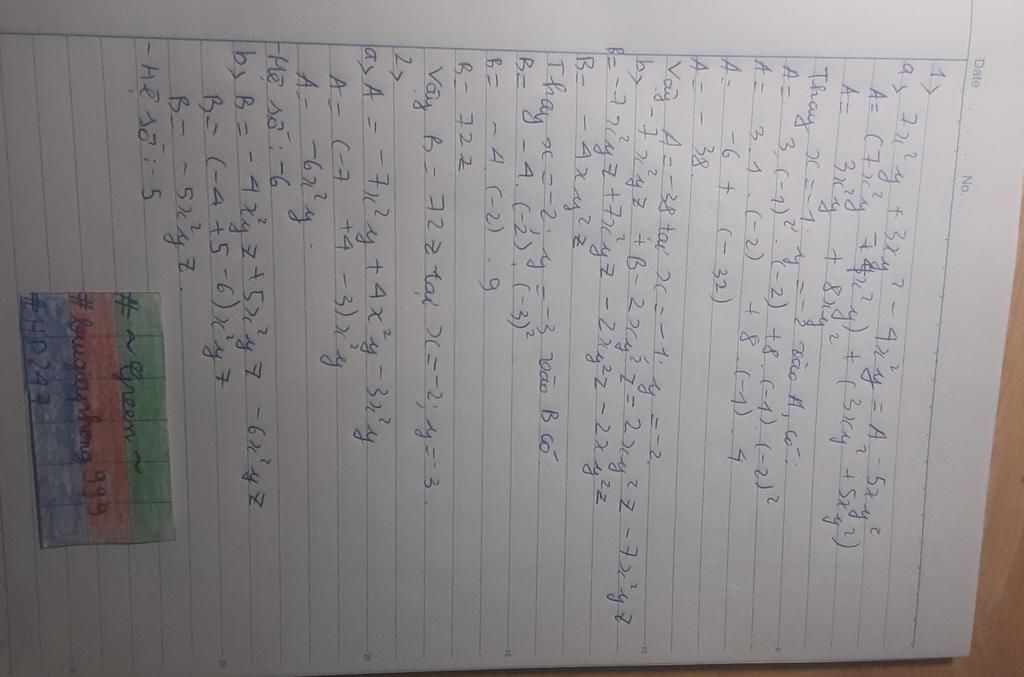 Date No.
1>
a> 7x²y + 3xy² - 4x²y = A - 5xy²
A = (7x²y - 4x²y) + (3xy² + 5xy²)
A = 3x²y + 8xy²
Thay x = -1; y = -2 vào A, có:
A = 3.(-1)².(-2) + 8.(-1).(-2)²
A = 3.1.(-2) + 8.(-1).4
A = -6 + (-32)
A = -38.
Vậy A = -38 tại x = -1; y = -2.
b> -7x²yz + B - 2xy²z = 2xy²z - 7x²yz
B = -7x²yz + 7x²yz - 2xy²z - 2xy²z
B = -4xy²z
Thay x = -2; y = -3 vào B có:
B = -4.(-2).(-3)²
B = -4.(-2).9
B = 72z
Vậy B = 72z tại x = -2; y = -3.
2>
a> A = -7x²y + 4x²y - 3x²y
A = (-7 + 4 - 3)x²y
A = -6x²y.
-Hệ số: -6
b> B = -4x²yz + 5x²yz - 6x²yz
B = (-4 + 5 - 6)x²yz
B = -5x²yz.
- Hệ số: -5
#~Green~
#HD247